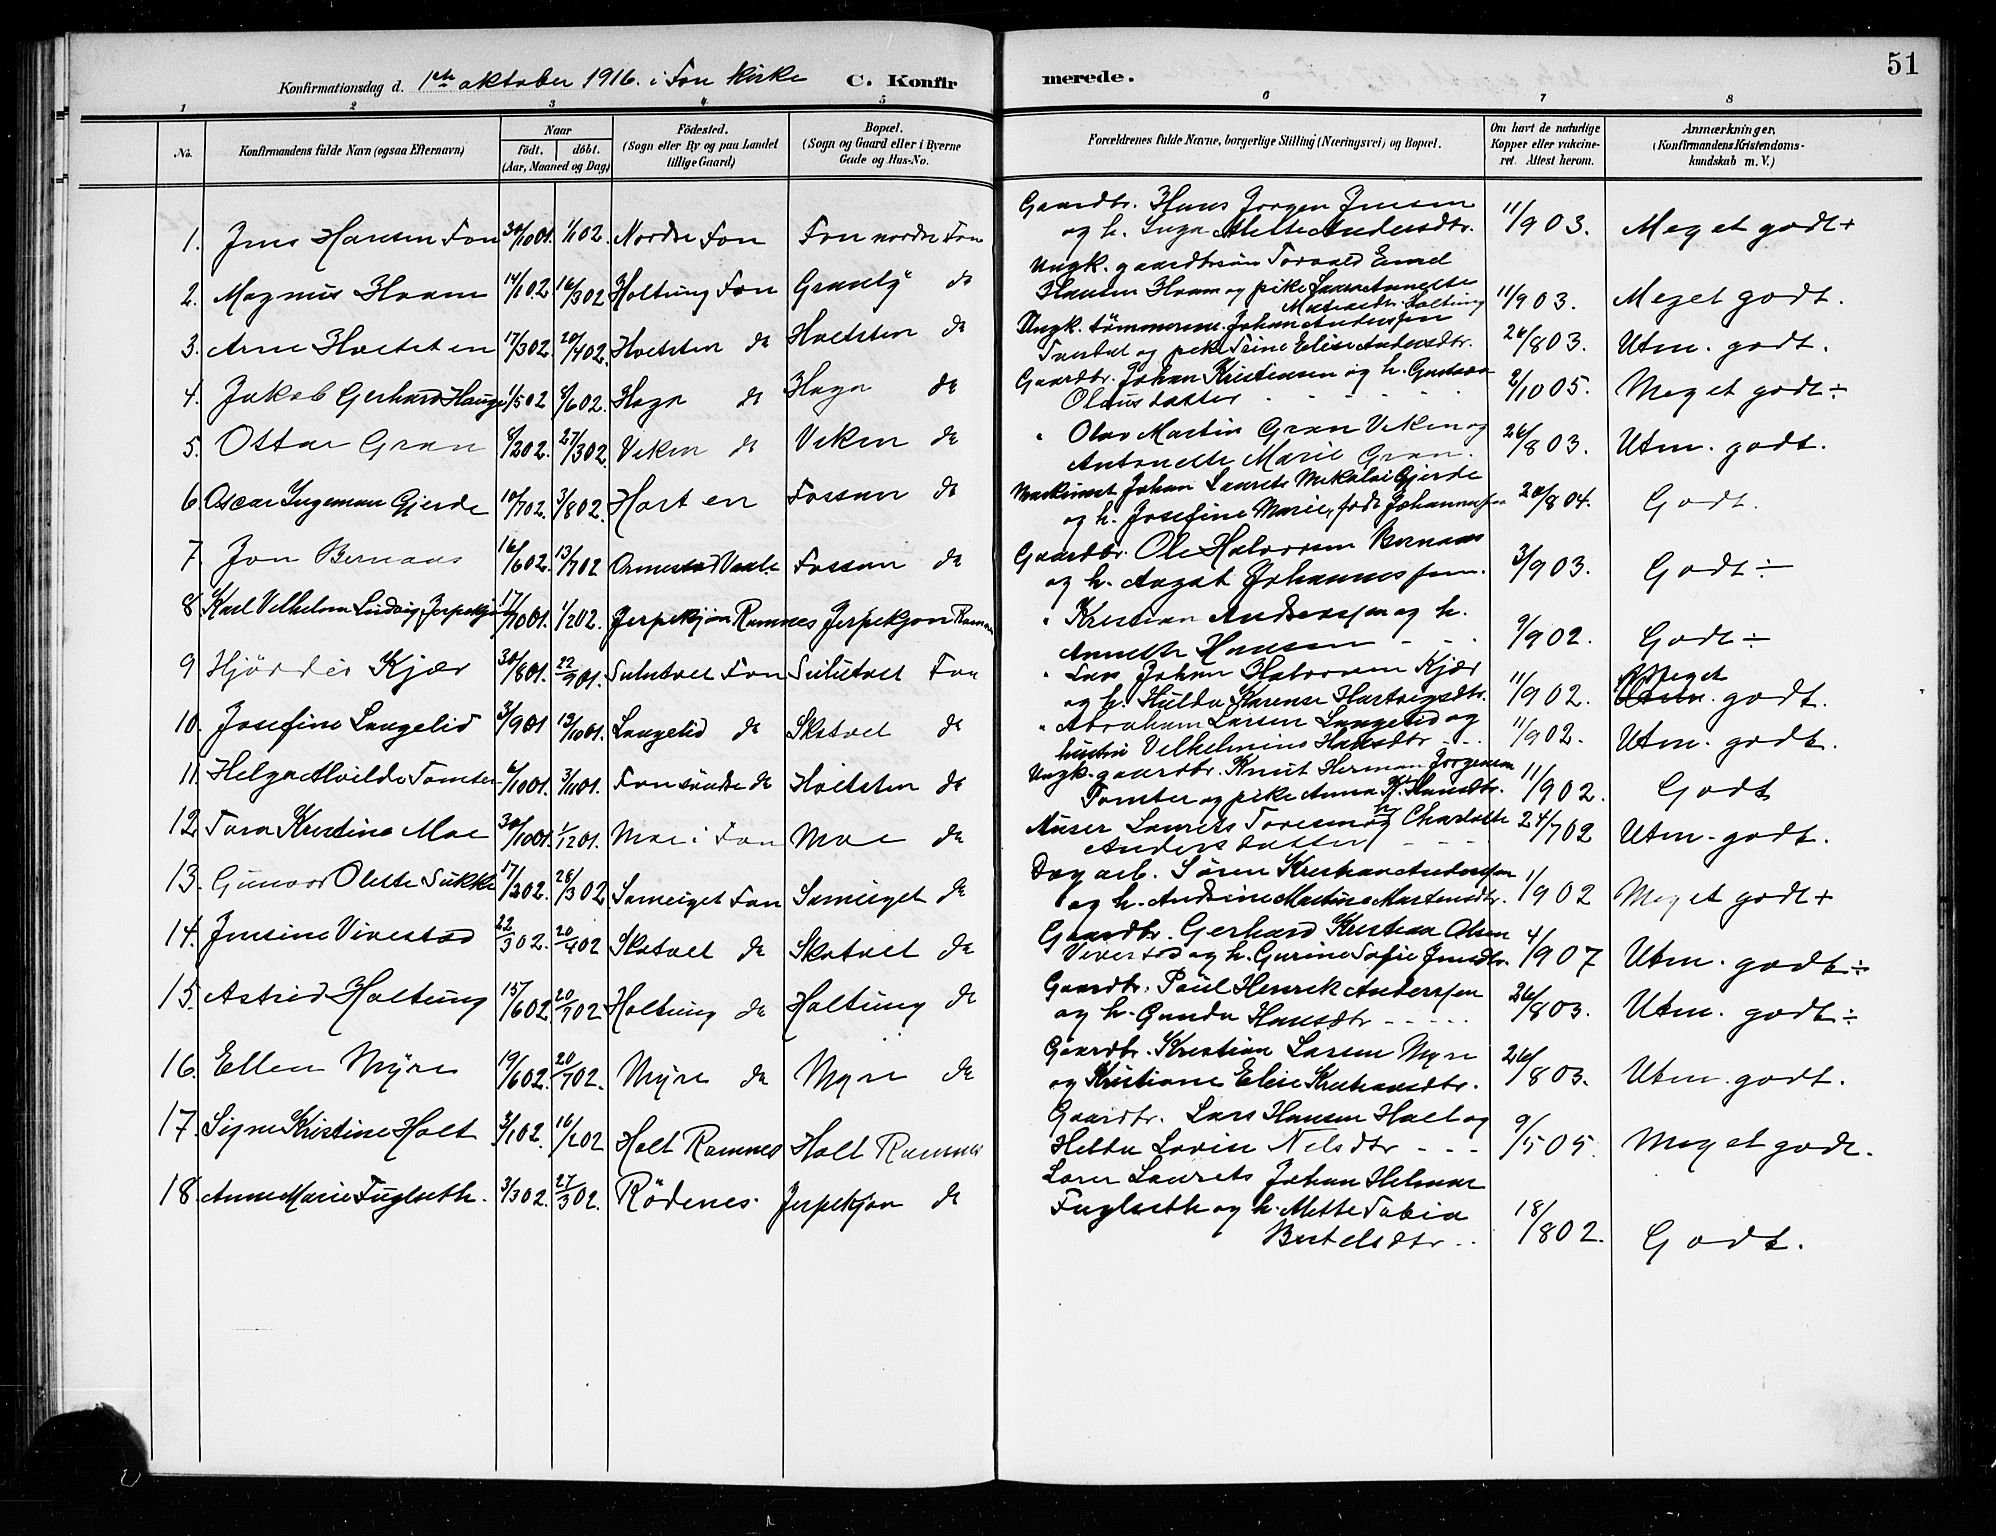 51
Konfirmationsdag d. 1ste oktober 1916. i Fon Kirke C. Konfirmerede.
1 2 3 4 5 6 7 8
No. Konfirmandens fulde Navn (ogsaa Efternavn) Naar født. døbt. (Aar, Maaned og Dag) Födested. (Sogn eller By og paa Landet tillige Gaard) Bopæl. (Sogn og Gaard eller i Byerne Gade og Hus-No. Forældrenes fulde Navne, borgerlige Stilling (Næringsvei) og Bopæl. Om havt de naturlige Kopper eller vakcineret. Attest herom. Anmærkninger, (Konfirmandens Kristendomskundskab m. V.)
Gaardbr. Hans Jørgen Jensen
1. Jens Hansen Fon 30/1001. 1/102. Nordre Fon Fon nordre Fon og h. Inga Mette Andersdtr. 11/903. Meget godt+
Ungk. gaardbrsøn Torvald Emil
2. Magnus Hvam 14/102. 16/302 Holtung Fon Granly do Hansen Hvam og pike Laura Annette Mathisdtr. Holtung 11/903. Meget godt.
3. Arne Holtsten 17/302. 20/402. Holtsten do Holtsten do Ungk. tømmerm. Johan Anderssen
Tveital og pike Trine Elise Andersdtr. 26/803. Utm. godt.
4. Jakob Gerhard Hauge 1/502 8/602. Haga do Haga do Gaardbr. Johan Kristensen og h. Gustava
Olausdatter 2/1005. Meget godt÷
5. Ottar Gran 8/202. 27/302. Viken do Viken do " Olav Martin Gran Viken og
Antonette Marie Gran. 26/803. Utm. godt.
6. Oscar Ingeman Gjerde 10/702. 3/802. Horten Fossan do Maskinist Johan Laurits Nikolai Gjerde
og h. Josefine Marie, født Johannessen 20/804. Godt.
7. Jon Bernaas 16/602. 13/702 Ormestad Vaale Fossan do Gaardbr. Ole Halvorsen Bernaas
og h. Aagot Johannessen. 3/903. Godt÷
8. Karl Vilhelm Ludvig Jerpekjøn 17/1001. 1/202. Jerpekjøn Ramnes Jerpekjøn Ramnes " Kristian Anderssen og h.
Annette Hansen 9/902. Godt÷
9 Hjørdis Kjær 30/801. 22/901. Sulutvet Fon Sulutvet Fon " Lars Johan Halvorsen Kjær
og h. Hulda Karense Hartvigsdtr. 11/902. Meget godt.
10. Josefine Langelid 3/901 13/1001. Langelid do Skatvet do " Abraham Larsen Langelid og
hustru Vilhelmine Hansdtr. 11/902. Utm. godt.
11. Helga Alvilde Tomter 6/1001. 3/1101. Fon søndre do Holtsten do Ungk. gaardbr. Knut Herman Jørgensen
Tomter og pike Anna K. Hansdtr. 11/902. Godt
12 Tora Kristine Moe 30/1001. 1/1201. Moe i Fon Moe do Anser Laurits Toresen og h. Charlotte
Andersdatter 24/702 Utm. godt.
13. Gunvor Olette Sukke 17/202. 28/302. Sameiget Fon Sameiget do Dagarb. Søren Kristian Anderssen
og h. Andrine Martine Martinsdtr. 1/902 Meget godt+
14. Jensine Virestad 22/302. 20/402 Skatvet do Skatvet do Gaardbr. Gerhard Kristian Olsen
Virestad og h. Gurine Sofie Jensdtr. 4/907 Utm. godt÷
15. Astrid Holtung 15/602. 20/702 Holtung do Holtung do Gaardbr. Paul Henrik Anderssen
og h. Gunda Hansdtr 26/803. Utm. godt÷
16. Ellen Myre 19/602. 20/702. Myre do Myre do Gaardbr. Kristian Larsen Myre
og Kristiane Elise Kristiansdtr. 26/803. Utm. godt.
17. Signe Kristine Holt 3/102. 16/202 Holt Ramnes Holt Ramnes Gaardbr. Lars Hansen Holt og
Helda Lovise Nilsdtr 9/505. Meget godt.
18. Anne Marie Fuglseth. 3/302. 27/302. Rödenes. Jerpekjøn do Lærer Laurits Johan Helmar
Fuglseth og h. Mette Tobia
Bertelsdtr 18/802. Godt.